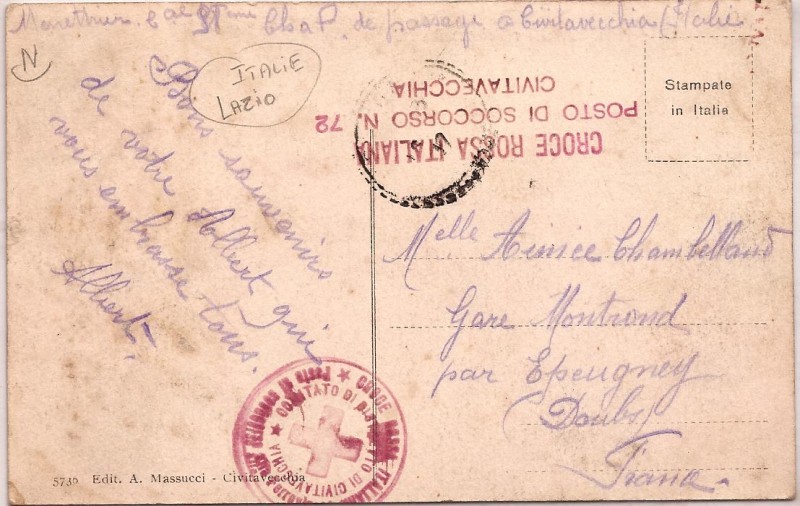 de passage a Civitavecchia (Italie
N
ITALIE
LAZIO
Bons souvenirs
de votre Albert qui
vous embrasse tous.
Albert.
CROCE ROSSA ITALIANA
POSTO DI SOCCORSO N. 72
CIVITAVECCHIA
Stampate
in Italia
Melle Chambelland
Gare Montrond
par Epeugney
(Doubs)
France.
CROCE ROSSA ITALIANA
COMITATO DI DISTRETTO DI CIVITAVECCHIA
5736 Edit. A. Massucci - Civitavecchia